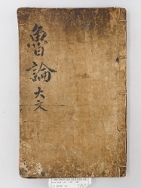 魯論
大文